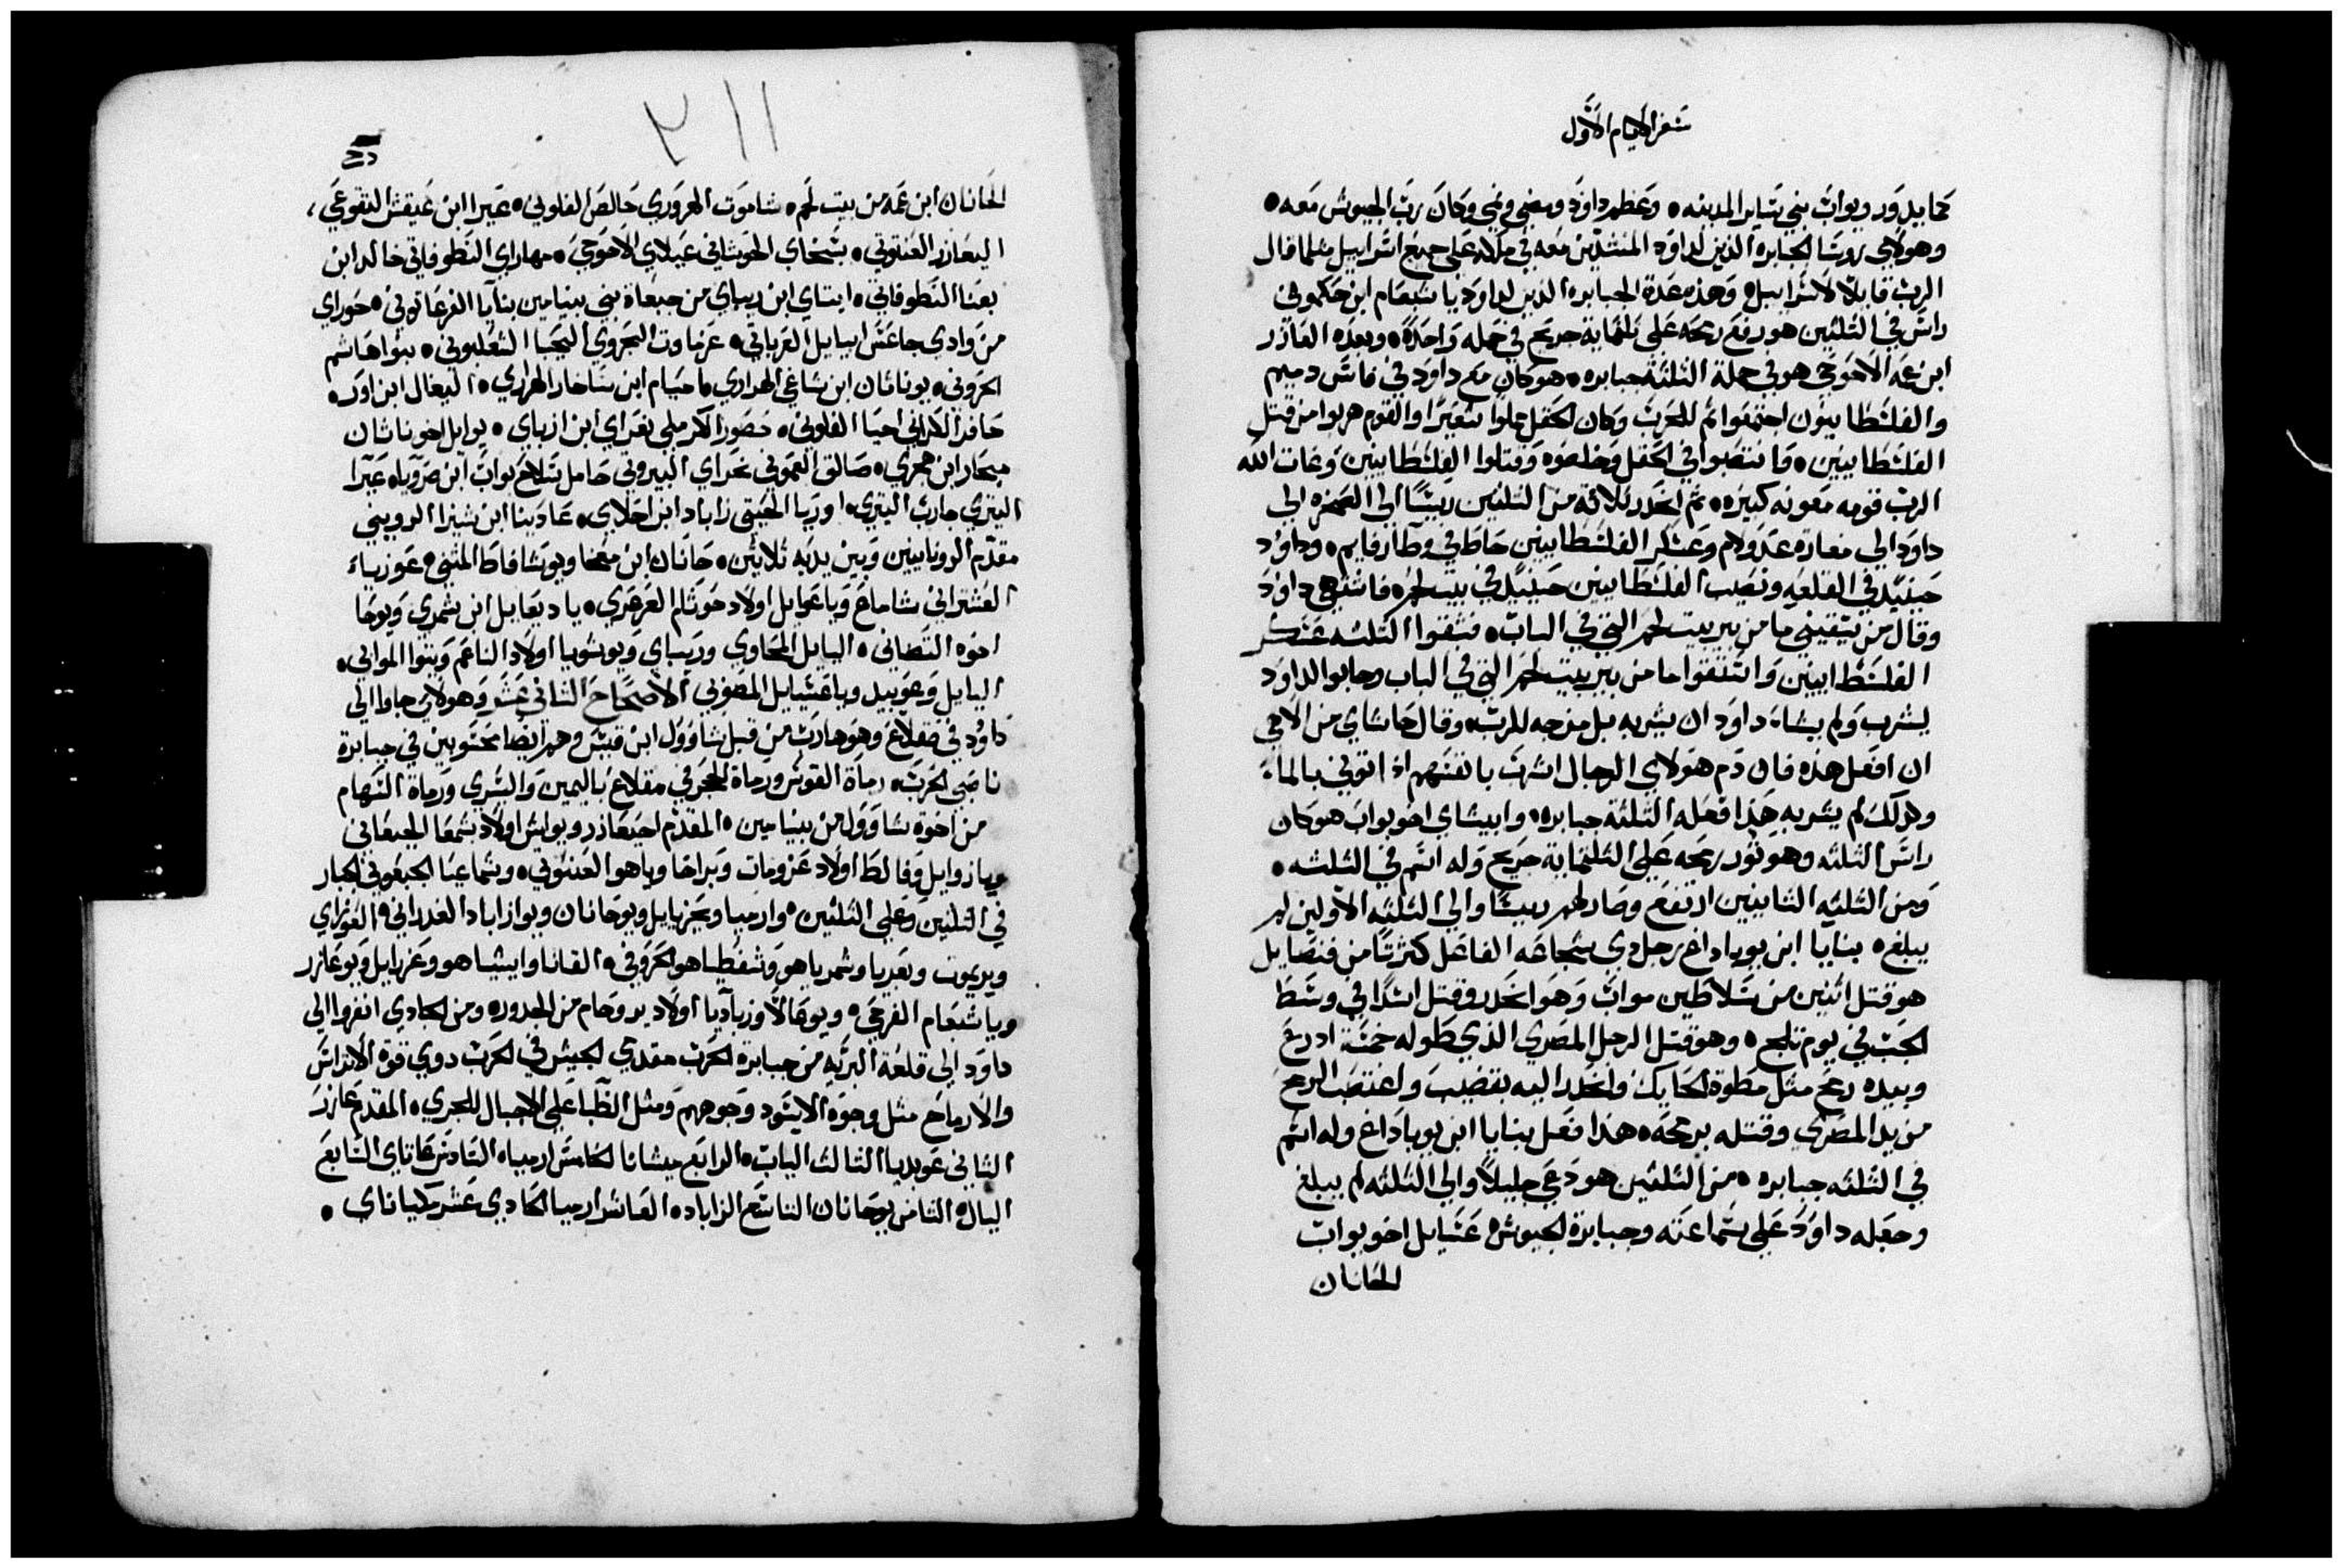 سفر الايام الاول
كما يدور ويواب بني ساير المدينه ۰ وعظم داود ومضي ونمي وكان رب الجيوش معه ۰
وهولاي روسا الجبابره الذين لداود المنشدين معه في ملكه علي جميع اسراييل مثلما قال
الرب قايلا لاسراييل ۰ وهذه عدة الجبابره الذين لداود ياشبعام ابن حكموني
راس في الثلثين هو رفع رمحه علي ثلثماية جريح في حمله واحدة ۰ وبعده العاذر
ابن عمه الاحوحي هو في جملة الثلثة جبابره ۰ هو كان مع داود في فاس دميم
والفلسطانيون اجتمعوا ثم للحرب وكان الحقل مملوا شعيرا والقوم هربوا من قبل
الفلسطانيين ۰ فانتصبوا في الحقل وخلصوه وقتلوا الفلسطانيين وغاث الله
الرب قومه معونه كبيره ۰ ثم انحدر ثلاثة من الثلثين رييسا الي الصخره الي
داود الي مغارة عدولام وعسكر الفلسطانيين حاطا في وطا رفايم ۰ وداود
حينيذ في القلعه ونصيب الفلسطانيين حينيذ في بيت لحم ۰ فاشتهي داود
وقال من يسقيني ما من بير بيت لحم التي في الباب ۰ فشقوا الثلثه عسكر
الفلسطانيين واستقوا ما من بير بيت لحم التي في الباب وجابوا لداود
ليشرب ولم يشاء داود ان يشربه بل مزجه للرب ۰ وقال حاشاي من الاهي
ان افعل هذه فان دم هولاي الرجال اشرب بانفسهم اذ اتوني بالماء
ولذلك لم يشربه هذا فعله الثلثة جبابره ۰ وابيشاي اخو يواب هو كان
راس الثلثه وهو ثور رمحه علي الثلثماية جريح وله اسم في الثلثه ۰
ومن الثلثه الثانيين ارتفع وصار لهم رييسا والي الثلثه الاولين لم
يبلغ ۰ بنايا ابن يوياداع رجل دي شجاعه الفاعل كثرتا من فضايل
هو قتل اثنين من سلاطين مواب وهو انحدر وقتل اسدا في وسط
الجب في يوم ثلج ۰ وهو قتل الرجل المصري الذي طوله خمسة ادرع
وبيده رمح مثل مطوة الحايك وانحدر اليه بقضيب واغتصب الرمح
من يد المصري وقتله برمحه ۰ هذا فعل بنايا ابن يوياداع وله اسم
في الثلثه جبابره ۰ من الثلثين هو دعي جليلا والي الثلثه لم يبلغ
وجعله داود علي سماعته وجبابرة الجيوش عسايل اخو يواب
الحانان
۲۱۱
الحانان ابن عمه من بيت لحم ۰ شاموت الهروري حالص الفلوني ۰ عيرا ابن عيقش التقوعي ،
اليعازر العنتوتي ۰ سبخاي الحوشاني عيلاي الاحوحي ۰ مهاراي النطوفاتي خالد ابن
بعنا النطوفاتي ۰ ايتاي ابن ريباي من جبعاة بني بنيامين بنايا الفرعاتوني ۰ حوراي
من وادي جاعش ابيايل العرباتي ۰ عزماوت البحروي اليحبا الشعلبوني ۰ بنوا هاشم
الجروني ۰ يوناثان ابن شاغي الهراري ماحيام ابن ساخار الهراري ۰ اليفال ابن اور ۰
حافر الكراتي احيا الفلوني ۰ حصور الكرملي نعراي ابن ازباي ۰ يوايل اخو ناثان
مبحار ابن هجري ۰ صالق العموني نحراي البيروتي حامل سلاح يواب ابن صرويا ۰ عيرا
اليتري جارب اليتري ۰ اوريا الحيتي زاباد ابن احلاي ۰ عادينا ابن شيزا الروبيني
مقدم الروبانيين وبين يديه ثلاثين ۰ حانان ابن معخا ويوشافاط المثني ۰ عوزياء
العشتراني شاماع وياعوايل اولاد حوثام العرعري ۰ ياديعايل ابن شمري ويوحا
اخوه التصاني ۰ ايليايل المحاوي ويريباي ويوشويا اولاد الناعم ويثنوا الموابي ۰
ايليايل وعوبيد وياعسيايل المصوبي الاصحاح الثاني عشر وهولاي جاوا الي
داود في صقلاغ وهو هارب من قبل شاوول ابن قيس وهم ايضا محسوبين في جبابرة
ناصبي الحرب ۰ رماة القوس ورماة الحجر في مقلاع باليمين واليسري ورماة السهام
من اخوة شاوول من بنيامين ۰ المقدم احيعاذر ويواش اولاد شمعا الجبعاني
ويازوايل وفالط اولاد عزومات وبراخا وياهوا العنتوتي ۰ وشماعيا الجبعوني الجبار
في الثلثين وعلي الثلثين ۰ وارميا ويحزيايل ويوحانان ويوازاباد الغدراني ۰ الغوزاي
ويريموت وبعديا وشمرياهو وشفطياهو الحروفي ۰ القانا وايشياهو وعزرايل ويوعازر
وياشبعام القرحي ۰ ويوعالا وزباديا اولاد يروحام من الجدور ۰ ومن الجادي انفروا الي
داود الي قلعة البريه من جبابرة الحرب مقدمي الجيش في الحرب دوي قوة الاتراس
والارماح مثل وجوه الاسود وجوههم ومثل الظبا علي الاجبال للجري ۰ المقدم عازر
الثاني عوبديا الثالث الياب ۰ الرابع ميشمانا الخامس ارميا ۰ السادس عاتاي السابع
اليال ۰ الثامن يوحانان التاسع الزاباد ۰ العاشر ارميا الحادي عشر مكباناي ۰